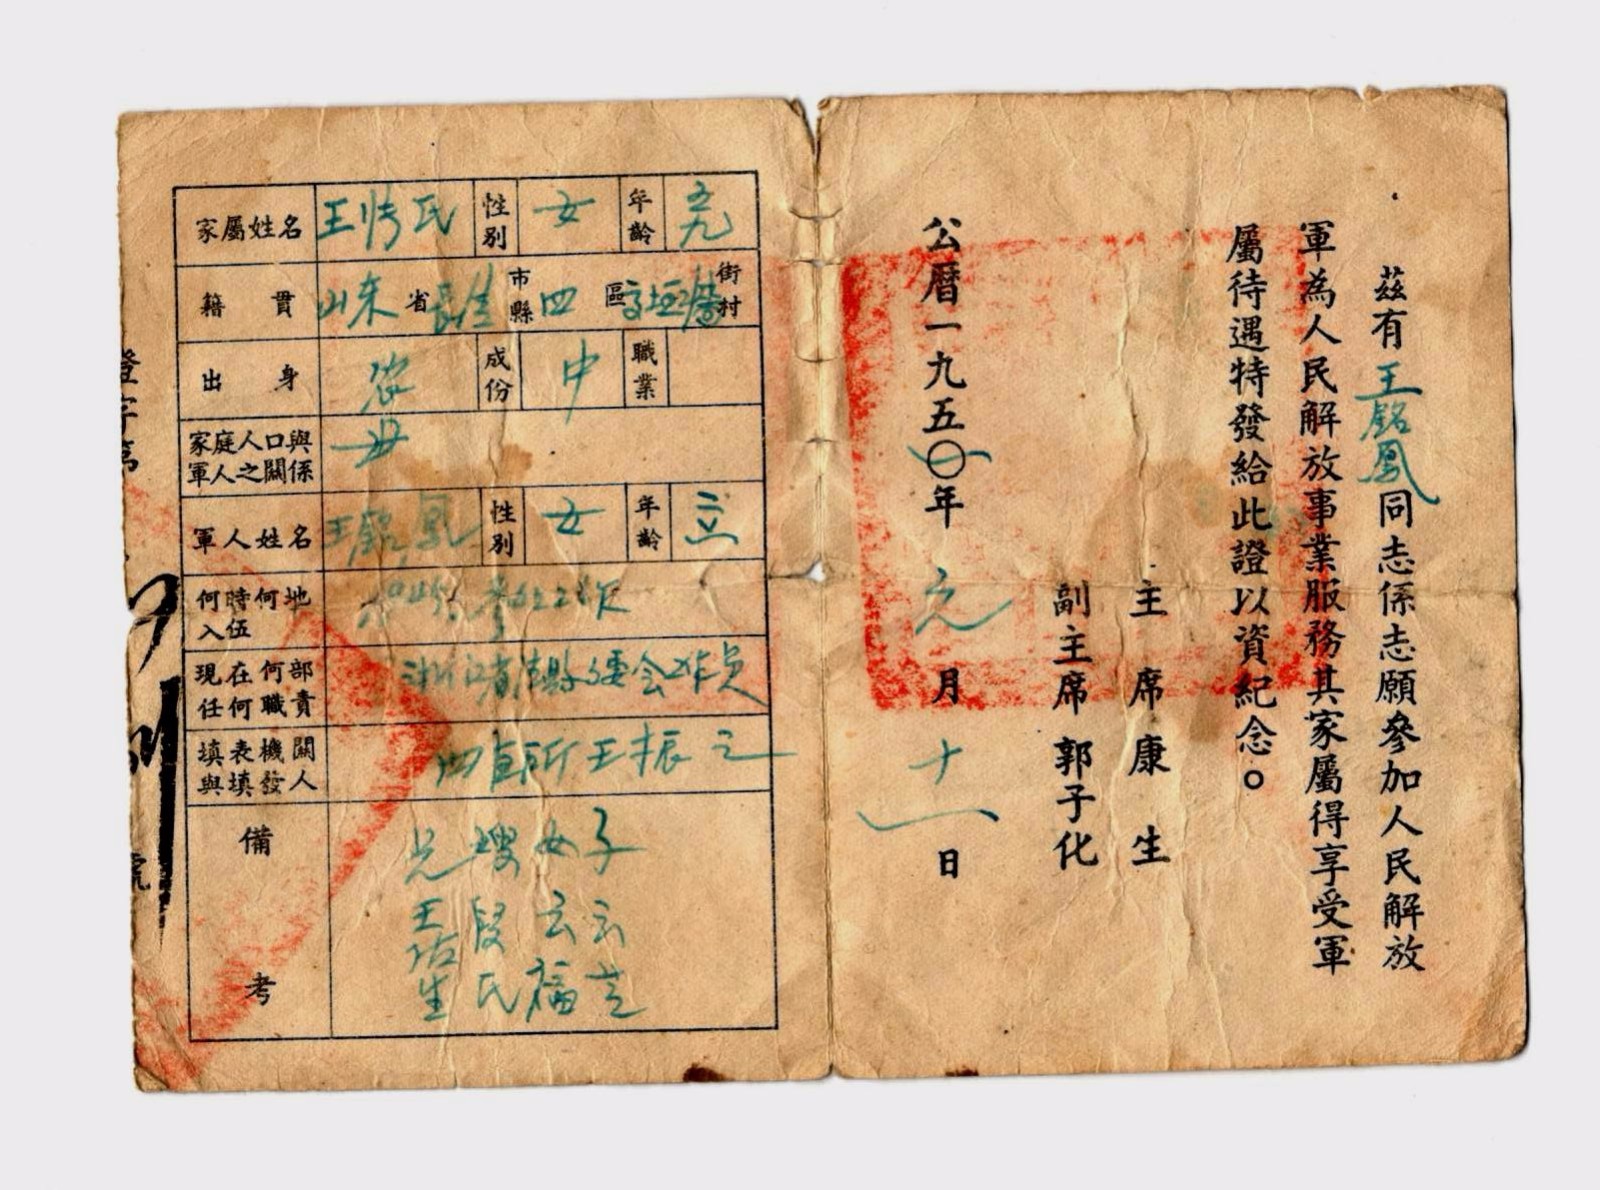 茲有王銘鳳同志係志願參加人民解放
軍為人民解放事業服務其家屬得享受軍
屬待遇特發給此證以資紀念。
主席康生
副主席郭子化
公曆一九五〇年元月十一日
家屬姓名 王 氏 性別 女 年齡 五九
籍貫 山東省 長清 市縣 四 區 街村
出身 農 成份 中 職業
家庭人口與軍人之關係 母
軍人姓名 王銘鳳 性別 女 年齡
何時何地入伍
現在何部任何職責 浙江省 縣 委会 员
填表機關與填發人 四 所 王振之
備考
兄 嫂 女 子
王 段 云 云
生 氏 福
證字第
號